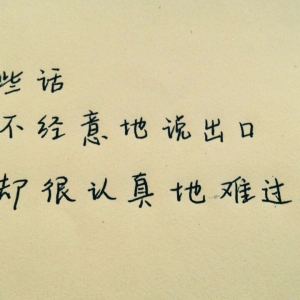 些话
不经意地说出口
却很认真地难过